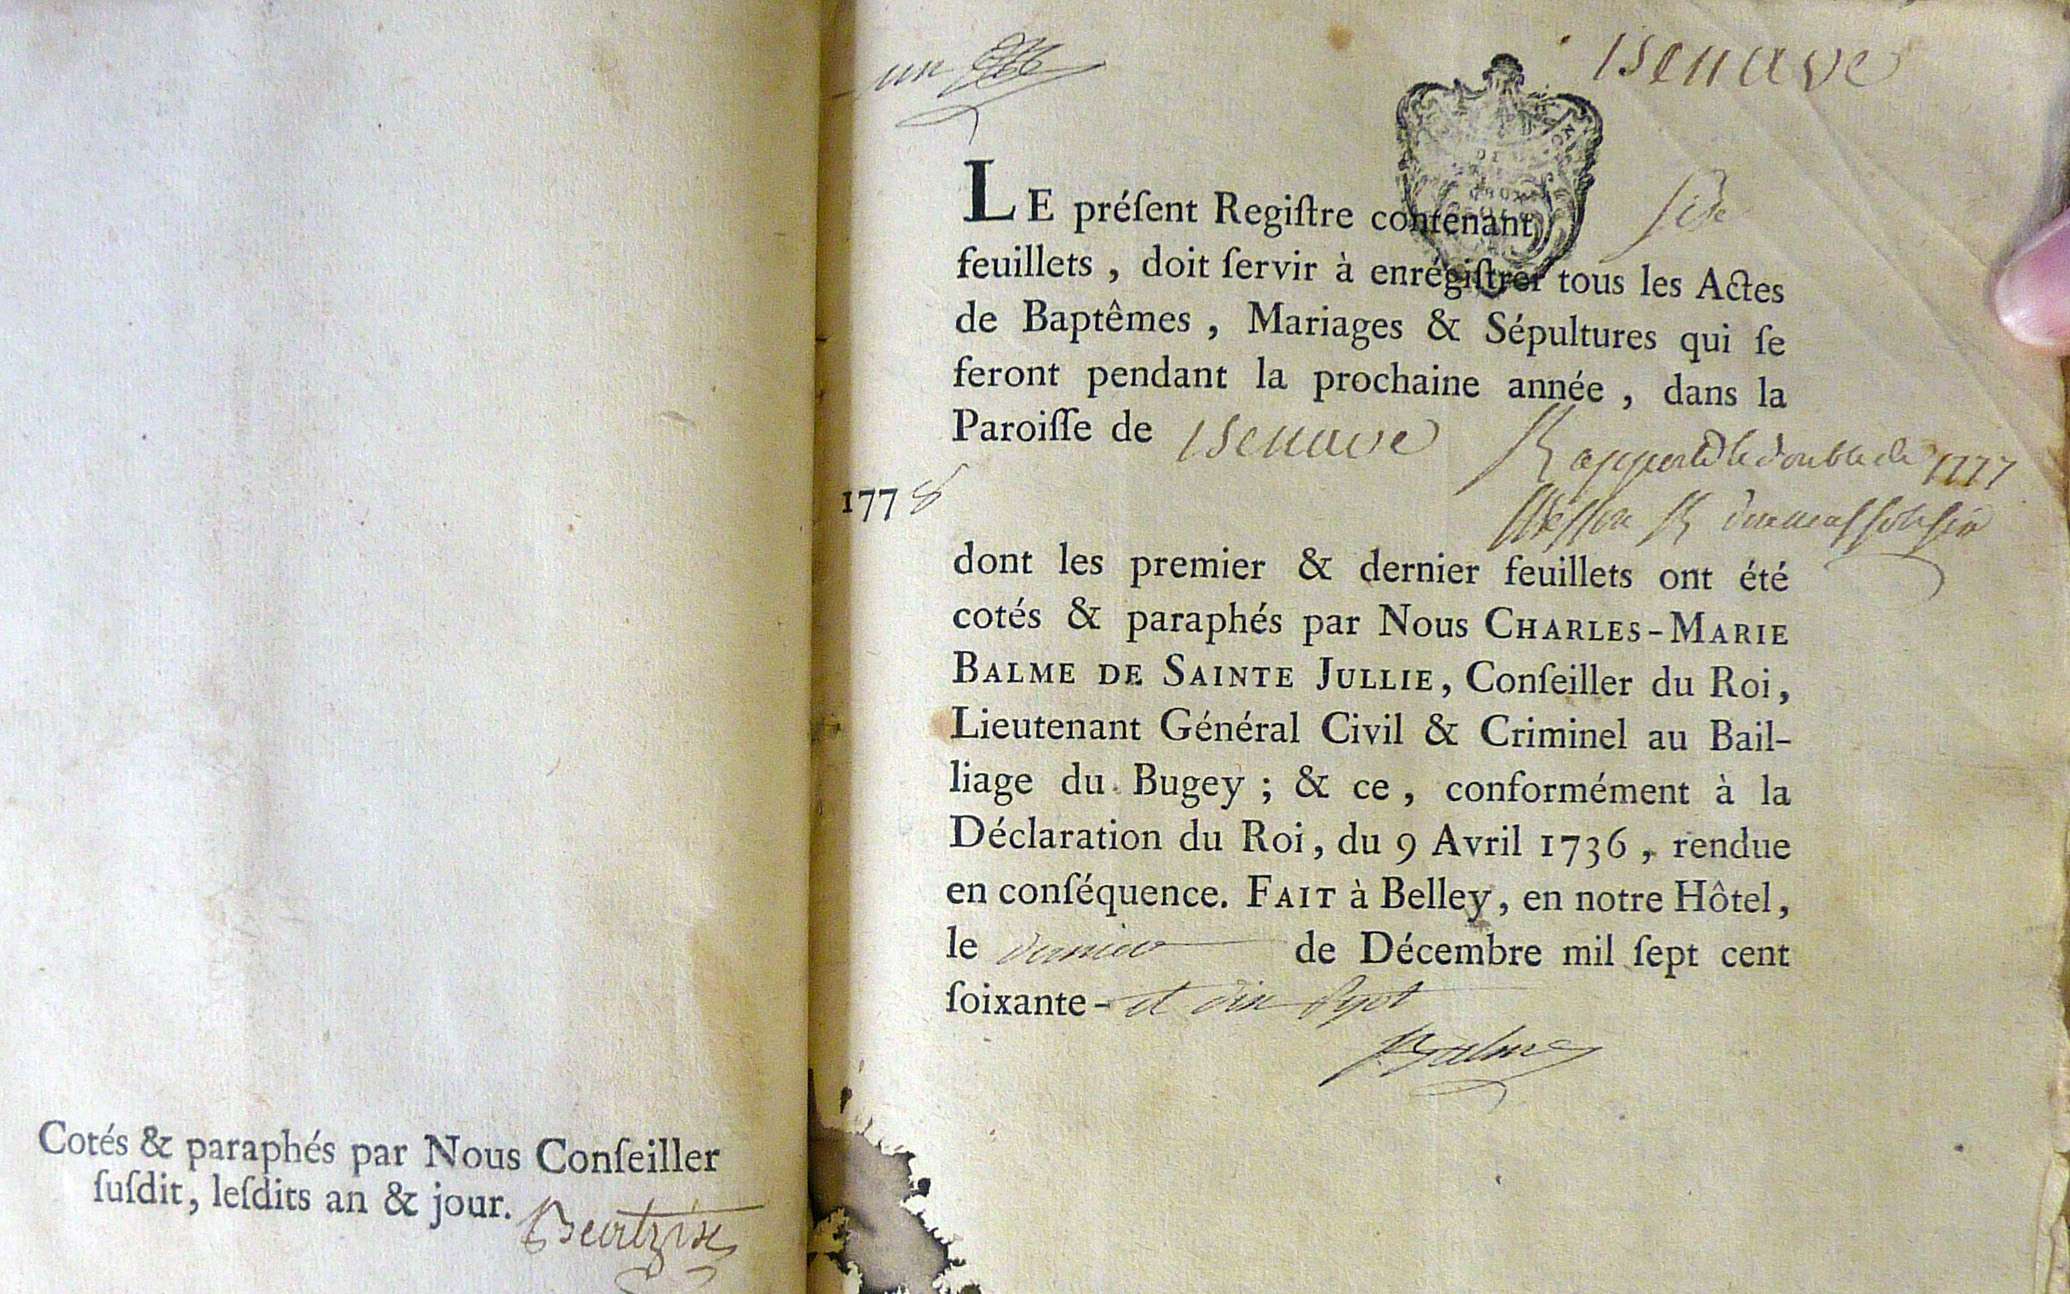 Cotés & paraphés par Nous Conſeiller
ſuſdit, leſdits an & jour.
un
Isenave
LE préſent Regiſtre contenant six
feuillets, doit ſervir à enrégiſtrer tous les Actes
de Baptêmes, Mariages & Sépultures qui ſe
feront pendant la prochaine année, dans la
Paroiſſe de Isenave
Rapporté le double de 1777
1778
dont les premier & dernier feuillets ont été
cotés & paraphés par Nous CHARLES-MARIE
BALME DE SAINTE JULLIE, Conſeiller du Roi,
Lieutenant Général Civil & Criminel au Bail-
liage du Bugey; & ce, conformément à la
Déclaration du Roi, du 9 Avril 1736, rendue
en conſéquence. FAIT à Belley, en notre Hôtel,
le dernier de Décembre mil ſept cent
ſoixante- et dix sept
Balme